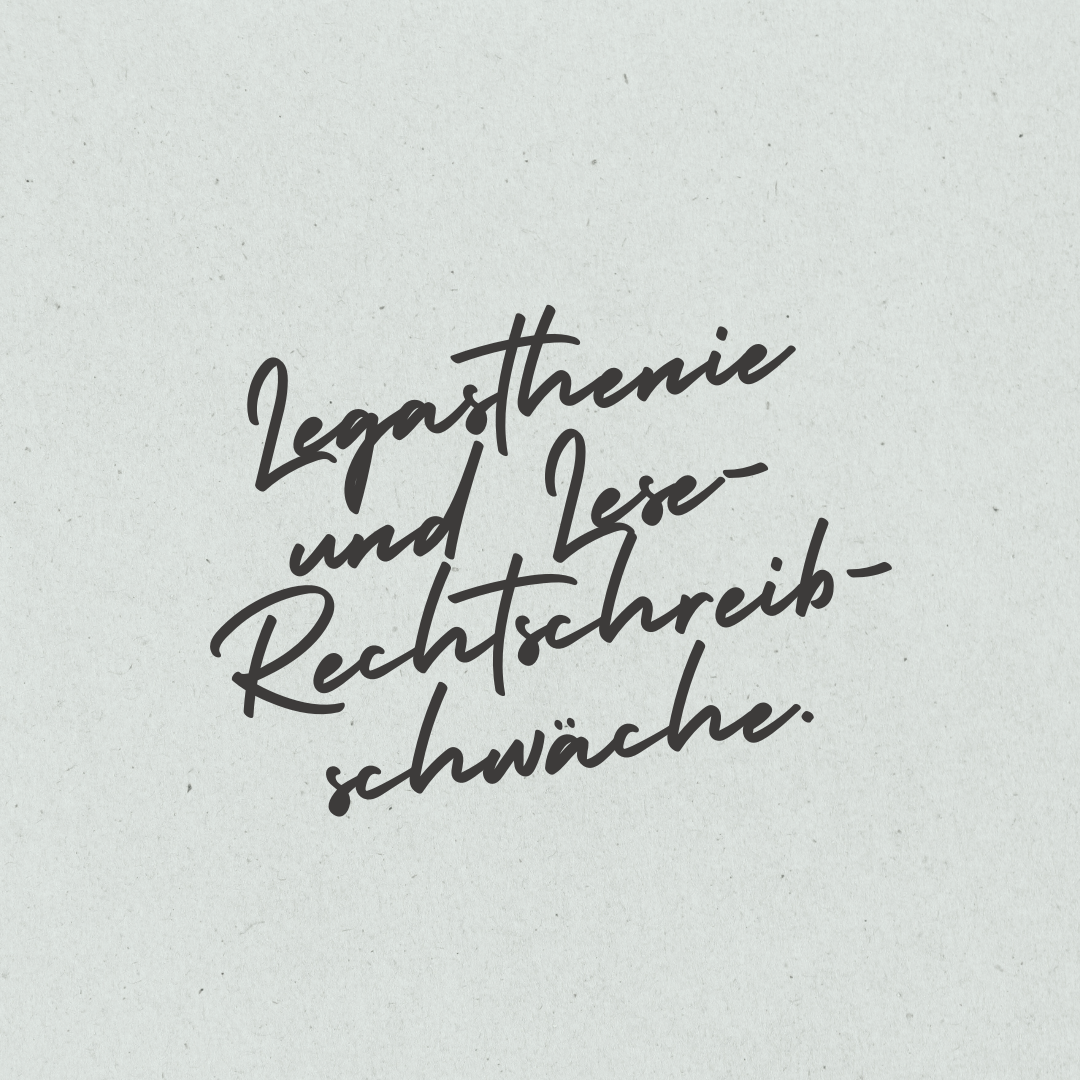 Legasthenie
und Lese-
Rechtschreib-
schwäche.